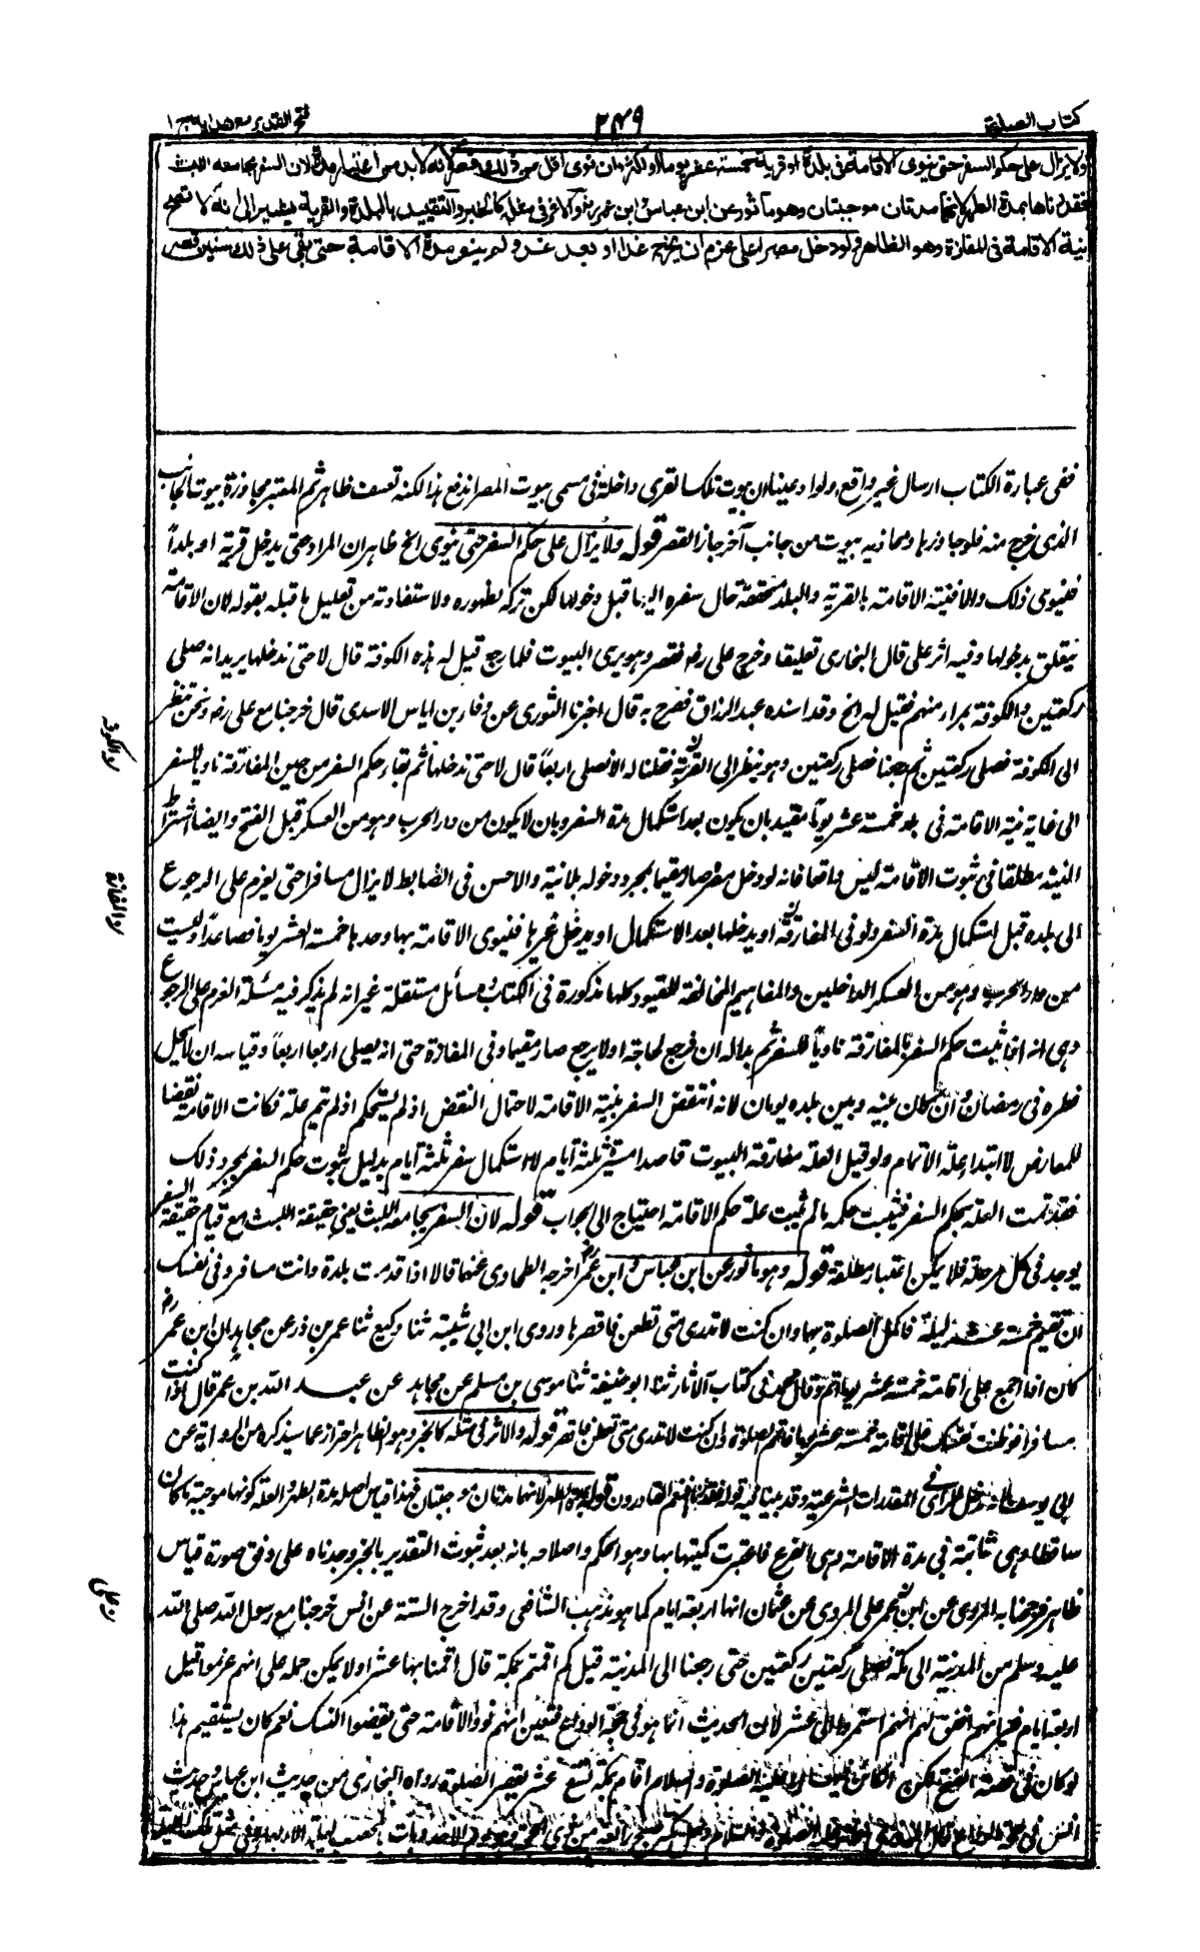 كتاب الصلوة ٢٤٩ فتح القدير مع هدايه ج ١
ولا يزال على حكم السفر حتى ينوى الاقامة فى بلدة او قرية خمسة عشر يوما او اكثر وان نوى اقل من ذلك قصر لانه لابد من اعتبار مدة لان السفر يجامعه اللبث
فقدرناها بمدة الطهر لانهما مدتان موجبتان وهو ماثور عن ابن عباس وابن عمر رض والاثر فى مثله كالخبر والتقييد بالبلدة والقرية يشير الى انه لا تصح
نية الاقامة فى المفازة وهو الظاهر ولو دخل مصرا على عزم ان يخرج غدا او بعد غد ولم ينو مدة الاقامة حتى بقى على ذلك سنين قصر
ففى عبارة الكتاب ارسال غير واقع ولو ادعينا ان بيوت تلك القرى داخلة فى مسمى بيوت المصر اندفع هذا لكنه تعسف ظاهر ثم المعتبر مجاوزة بيوت الجانب
الذى خرج منه فلو جاوزها وتحاذيه بيوت من جانب آخر جاز القصر قوله ولا يزال على حكم السفر حتى ينوى الخ ظاهر ان المراد حتى يدخل قرية او بلداً
فينوى ذلك والا فنية الاقامة بالقرية والبلد متحققة حال سفره اليها قبل دخولها لكن تركه لظهوره ولاستفادته من تعليل ما قبله بقوله لان الاقامة
يتعلق بدخولها وفيه اثر على قال البخارى تعليقا وخرج على رض فقصر وهو يرى البيوت فلما رجع قيل له هذه الكوفة قال لا حتى ندخلها يريد انه صلى
ركعتين والكوفة بمراى منهم فقيل له الخ وقد اسنده عبد الرزاق فصرح به قال اخبرنا الثورى عن وفاء بن اياس الاسدى قال خرجنا مع على رض ونحن ننظر
الى الكوفة فصلى ركعتين ثم رجعنا فصلى ركعتين وهو ينظر الى القرية فقلنا له الا تصلى اربعاً قال لا حتى ندخلها ثم بقاء حكم السفر من حين المفارقة ناويا للسفر
الى غاية نية الاقامة فى بلد خمسة عشر يوماً مقيد بان يكون بعد استكمال مدة السفر وبان لا يكون من دار الحرب وهو من العسكر قبل الفتح وايضا اشتراط
النية مطلقا فى ثبوت الاقامة ليس واقعا فانه لو دخل مصره صار مقيما بمجرد دخوله بلا نية والاحسن فى الضابط لا يزال مسافرا حتى يعزم على الرجوع
الى بلده قبل استكمال مدة السفر ولو فى المفازة او يدخلها بعد الاستكمال او يدخل غيرها فينوى الاقامة بها وحدها خمسة عشر يوما فصاعداً وليست
من دار الحرب وهو من العسكر الداخلين والمفاهيم المخالفة للقيود كلها مذكورة فى الكتاب مسائل مستقلة غير انه لم يذكر فيه مسئلة العزم على الرجوع
وهى انه اذا ثبت حكم السفر بالمفارقة ناوياً للسفر ثم بدا له ان يرجع لحاجة اولا يرجع صار مقيما وفى المفازة حتى انه يصلى اربعا اربعاً وقياسه ان لا يحل
فطره فى رمضان وان كان بينه وبين بلده يومان لانه انتقض السفر بنية الاقامة لاحتمال النقض اذ لم يستحكم اذ لم تتم علته فكانت الاقامة نقضا
للمعارض لا ابتداء علة الاتمام ولو قيل العلة مفارقة البيوت قاصدا مسيرة ثلثة ايام لا استكمال سفر ثلثة ايام بدليل ثبوت حكم السفر بمجرد ذلك
فقد تمت العلة لحكم السفر فيثبت حكمه ما لم تثبت علة حكم الاقامة احتياج الى الجواب قوله لان السفر يجامعه اللبث يعنى حقيقة اللبث مع قيام حقيقة السفر
يوجد فى كل مرحلة فلا يمكن اعتبار مطلقه قوله وهو ماثور عن ابن عباس وابن عمر رض اخرجه الطحاوى عنهما قالا اذا قدمت بلدة وانت مسافر وفى نفسك
ان تقيم خمسة عشر ليلة فاكمل الصلوة بها وان كنت لا تدرى متى تظعن فاقصرها وروى ابن ابى شيبة ثنا وكيع ثنا عمر بن ذر عن مجاهد ان ابن عمر رض
كان اذا اجمع على اقامة خمسة عشر يوما اتم وقال محمد فى كتاب الآثار ثنا ابو حنيفة ثنا موسى بن مسلم عن مجاهد عن عبد الله بن عمر قال اذا كنت
مسافرا فوطنت نفسك على اقامة خمسة عشر يوما فاتمم الصلوة وان كنت لا تدرى متى تظعن فاقصر قوله والاثر فى مثله كالخبر وهو الظاهر احتراز عما سيذكره من الرواية عن
ابى يوسف المقدرات الشرعية وقد ينافيه قوله فقدرناها القادرون قوله لانهما مدتان موجبتان فهذا قياس اصله مدة الطهر والعلة كونها موجبة ما كان
ساقطا وهى ثابتة فى مدة الاقامة وهى الفرع فاعتبرت كميتها بها وهو الحكم واصلاحه بانه بعد ثبوت التقدير بالخبر وجدناه على وفق صورة قياس
ظاهر فرجحنا به المروى عن ابن عمر على المروى عن عثمان انها اربعة ايام كما هو مذهب الشافعى وقد اخرج الستة عن انس خرجنا مع رسول الله صلى الله
عليه وسلم من المدينة الى مكة فصلى ركعتين ركعتين حتى رجعنا الى المدينة قيل كم اقمتم بمكة قال اقمنا بها عشرا ولا يمكن حمله على انهم عزموا قبل
اربعة ايام اتفق لهم انهم استمروا الى عشر لان الحديث انما هو فى حجة الوداع فتعين انهم نووا الاقامة حتى يقضوا النسك نعم كان يستقيم هذا
لو كان فى قصة الفتح لكن الصلوة والسلام اقام بمكة تسع عشر يقصر الصلوة رواه البخارى من حديث ابن عباس وحديث
انس فى حجة الوداع